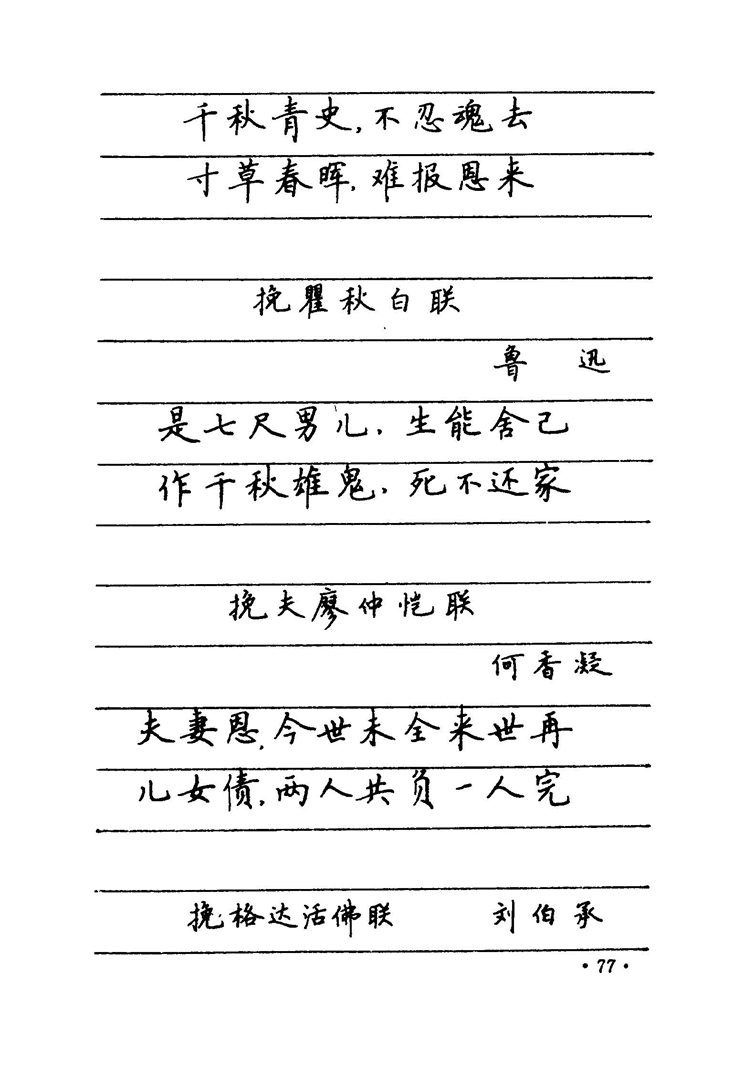 千秋青史,不忍魂去
寸草春晖,难报恩来
挽瞿秋白联
鲁 迅
是七尺男儿,生能舍己
作千秋雄鬼,死不还家
挽夫廖仲恺联
何香凝
夫妻恩,今世未全来世再
儿女债,两人共负一人完
挽格达活佛联 刘伯承
·77·